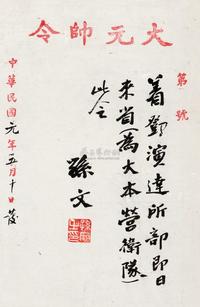 大元帥令
第 號
着鄧演達所部即日
來省（為大本營衛隊）
此令
孫文
中華民國元年五月十日發